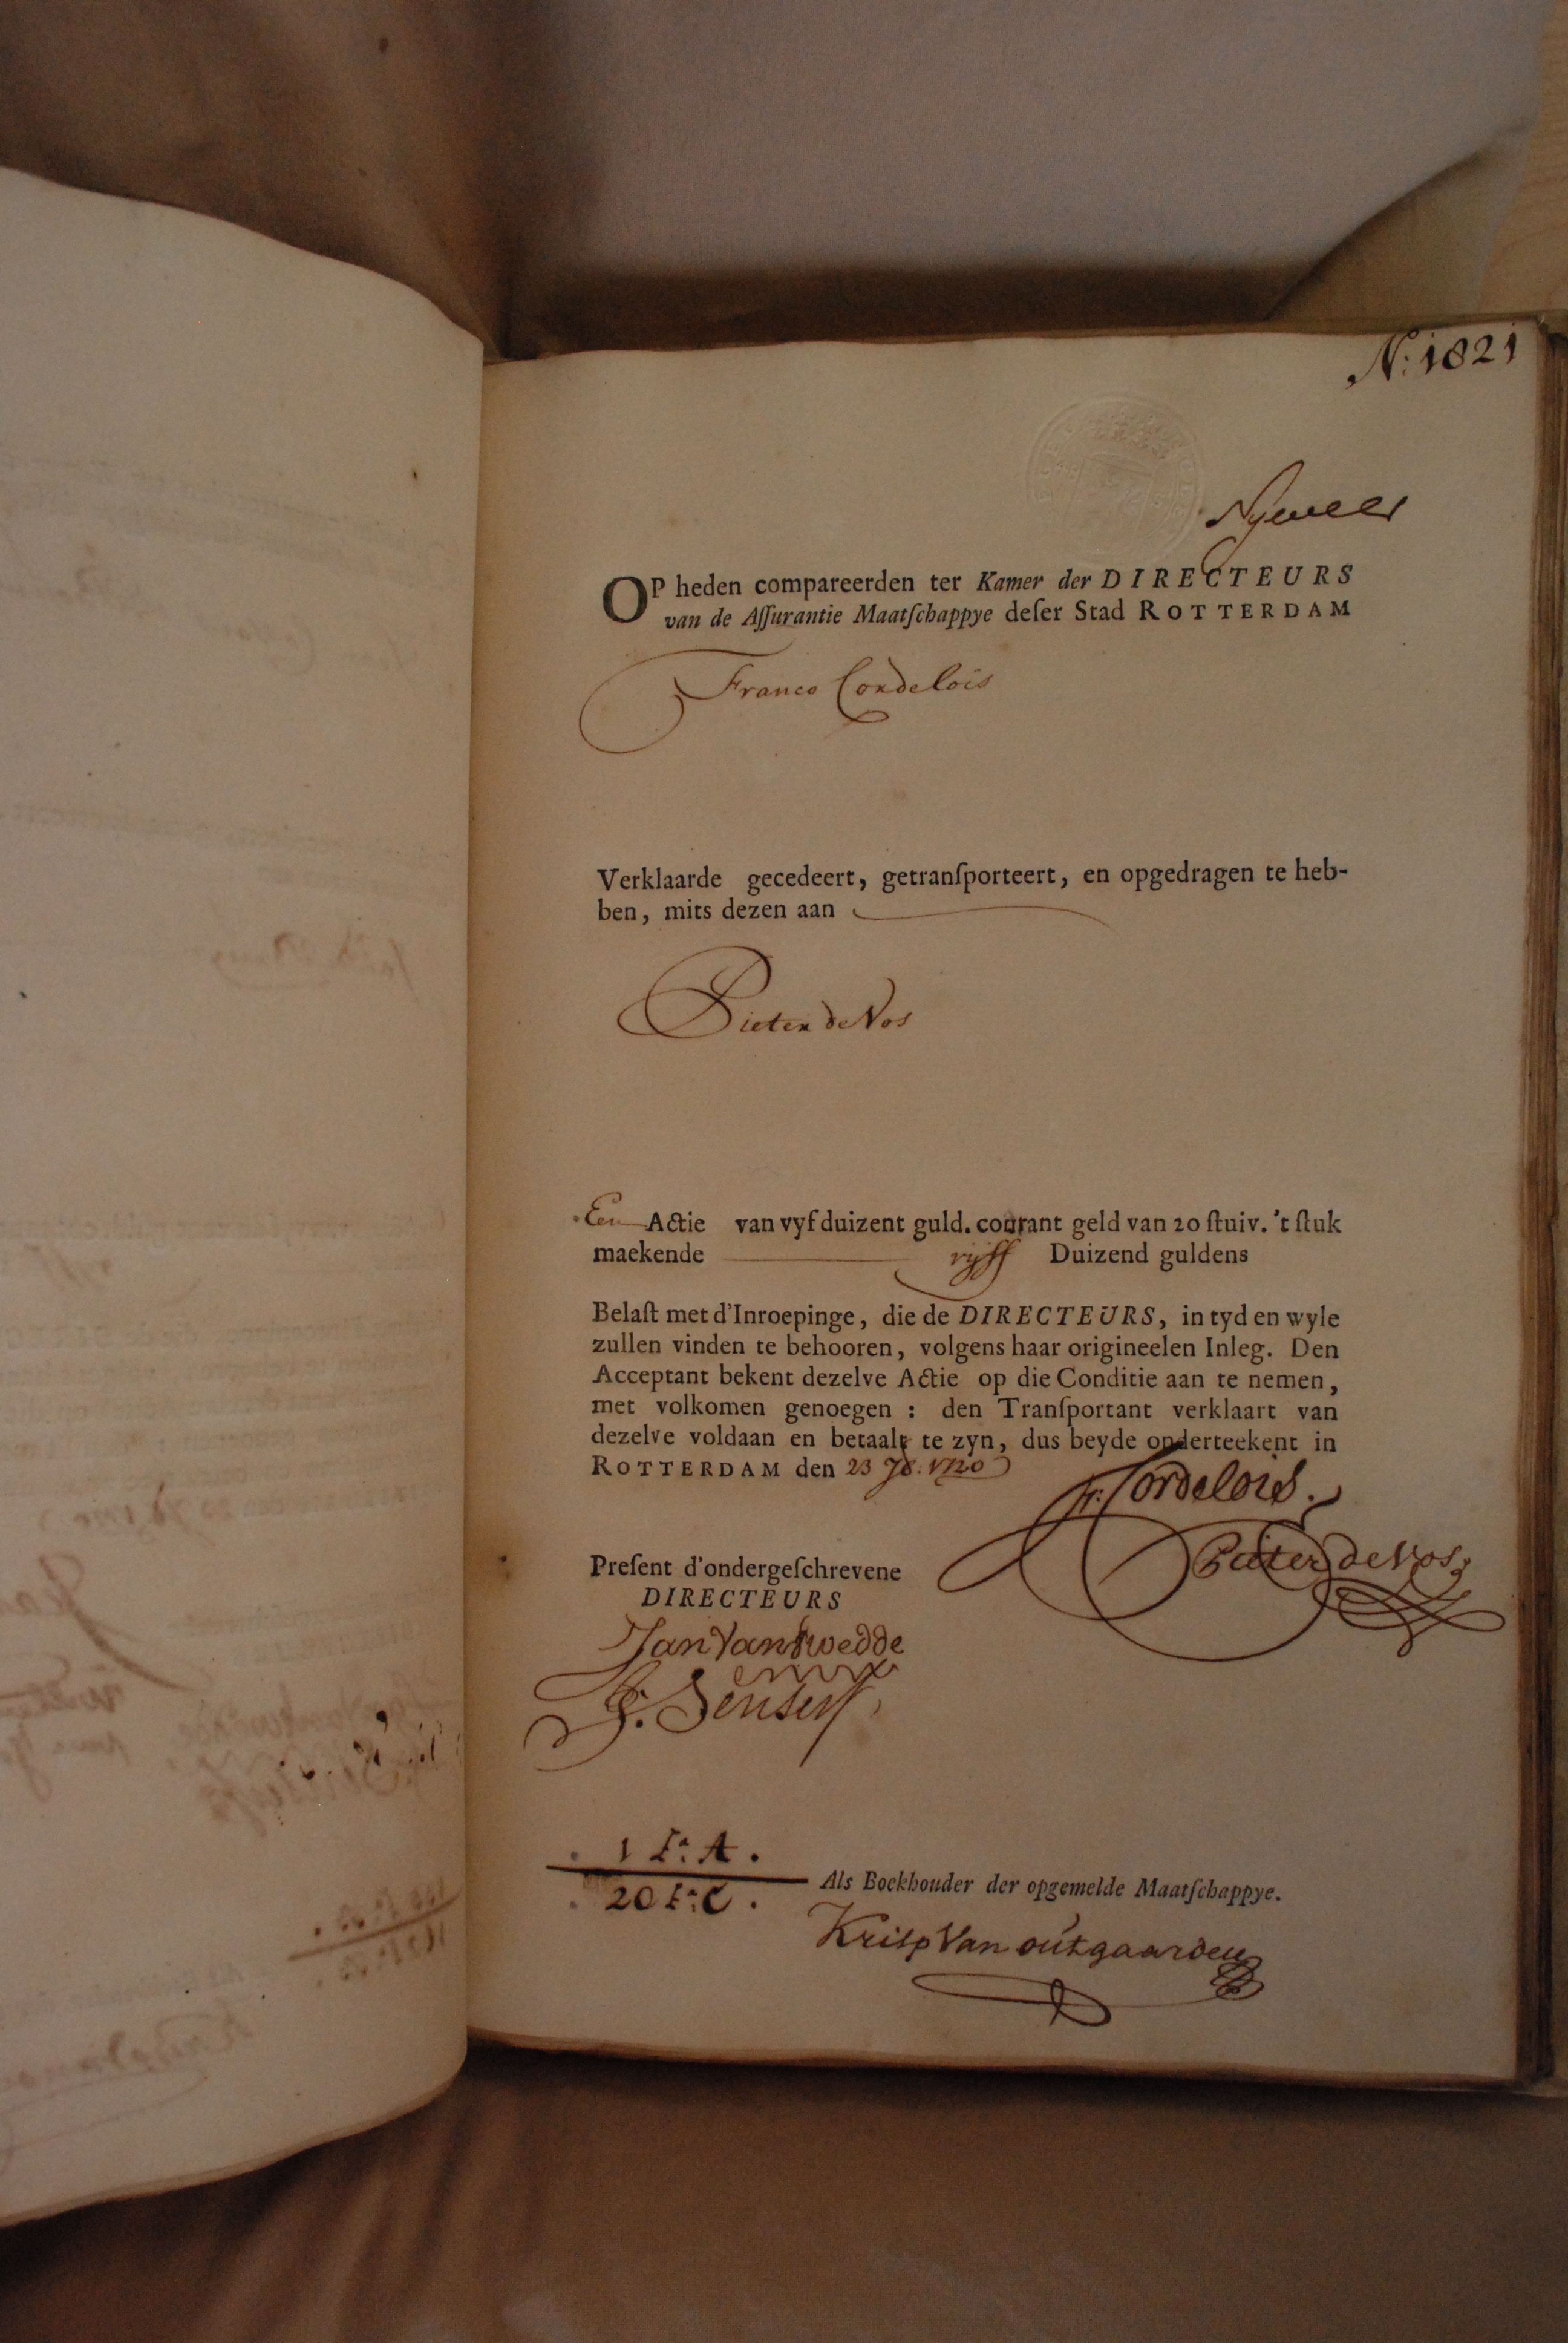 N: 1821
OP heden compareerden ter Kamer der DIRECTEURS
van de Aſſurantie Maatſchappye deſer Stad ROTTERDAM
Franco Cordelois
Verklaarde gecedeert, getranſporteert, en opgedragen te heb-
ben, mits dezen aan
Pieter de Vos
Een Actie van vyf duizent guld. courant geld van 20 ſtuiv. 't ſtuk
maekende vyff Duizend guldens
Belaſt met d'Inroepinge, die de DIRECTEURS, in tyd en wyle
zullen vinden te behooren, volgens haar origineelen Inleg. Den
Acceptant bekent dezelve Actie op die Conditie aan te nemen,
met volkomen genoegen : den Tranſportant verklaart van
dezelve voldaan en betaalt te zyn, dus beyde onderteekent in
ROTTERDAM den 23 7b: 1720
fr: Cordelois.
Pieter de Vos
Preſent d'ondergeſchrevene
DIRECTEURS
Jan Van
1 F:o A.
20 F:o C.
Als Boekhouder der opgemelde Maatſchappye.
Krisp Van outgaarden